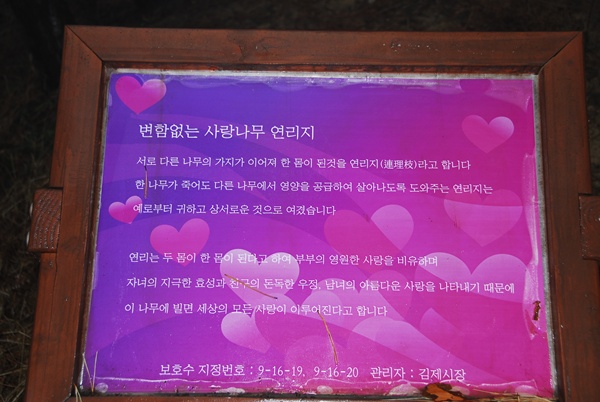 변함없는 사랑나무 연리지
서로 다른 나무의 가지가 이어져 한 몸이 된것을 연리지(連理枝)라고 합니다
한 나무가 죽어도 다른 나무에서 영양을 공급하여 살아나도록 도와주는 연리지는
예로부터 귀하고 상서로운 것으로 여겼습니다
연리는 두 몸이 한 몸이 된다고 하여 부부의 영원한 사랑을 비유하며
자녀의 지극한 효성과 친구의 돈독한 우정, 남녀의 아름다운 사랑을 나타내기 때문에
이 나무에 빌면 세상의 모든 사랑이 이루어진다고 합니다
보호수 지정번호 : 9-16-19, 9-16-20 관리자 : 김제시장